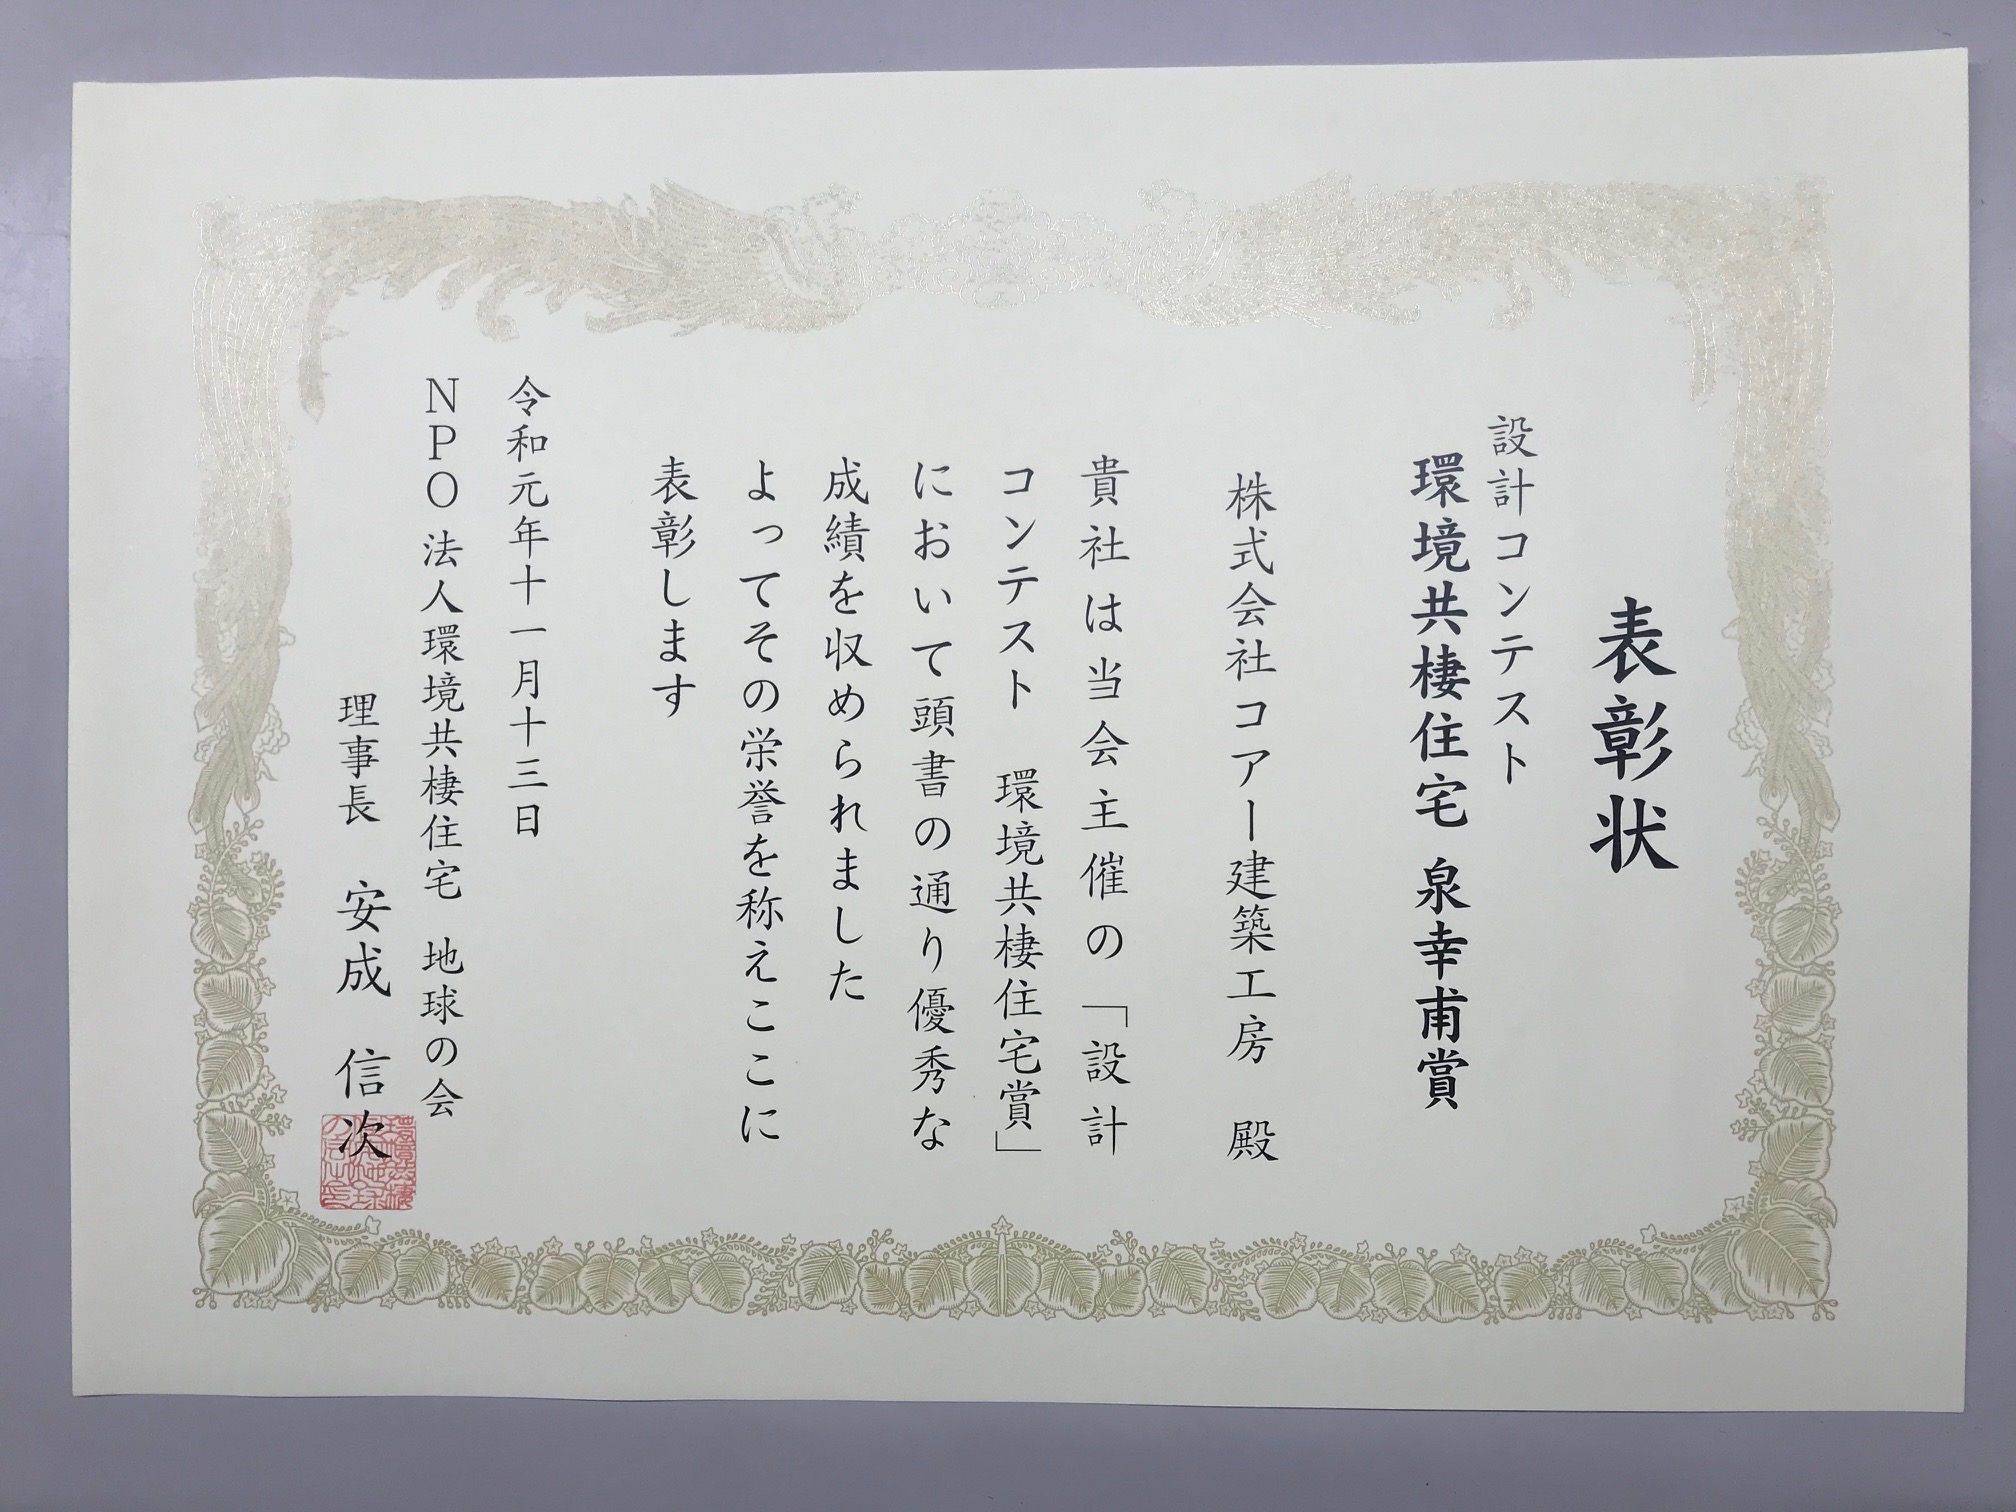 表彰状
設計コンテスト
環境共棲住宅 泉幸甫賞
株式会社コアー建築工房 殿
貴社は当会主催の「設計
コンテスト 環境共棲住宅賞」
において頭書の通り優秀な
成績を収められました
よってその栄誉を称えここに
表彰します
令和元年十一月十三日
NPO法人環境共棲住宅 地球の会
理事長 安成 信次